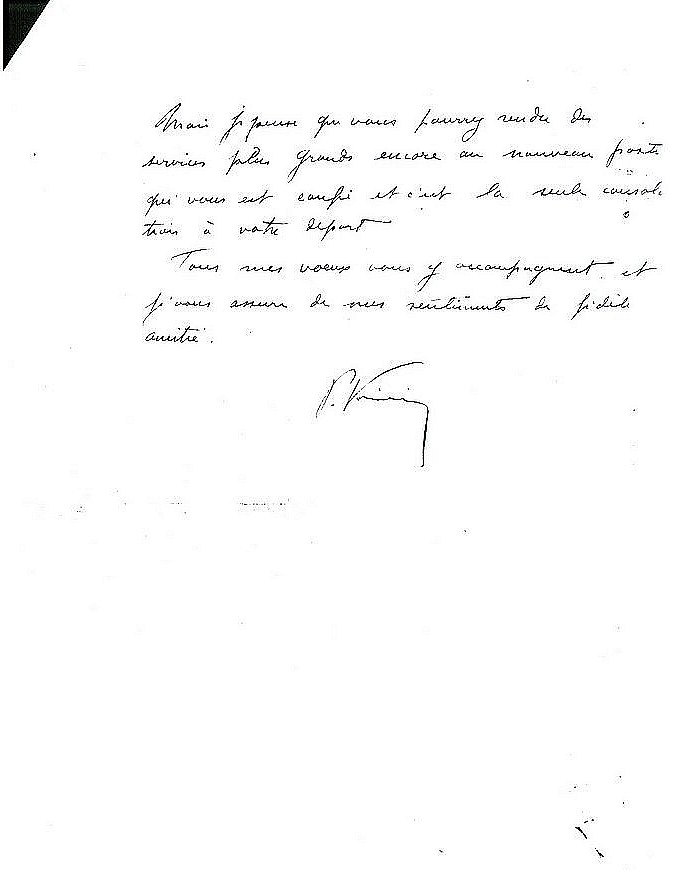 Mais je pense que vous pourrez rendre des
services plus grands encore au nouveau poste
qui vous est confié et c'est la seule consola
tion à votre départ
Tous mes voeux vous y accompagnent et
je vous assure de mes sentiments de fidèle
amitié.
P.